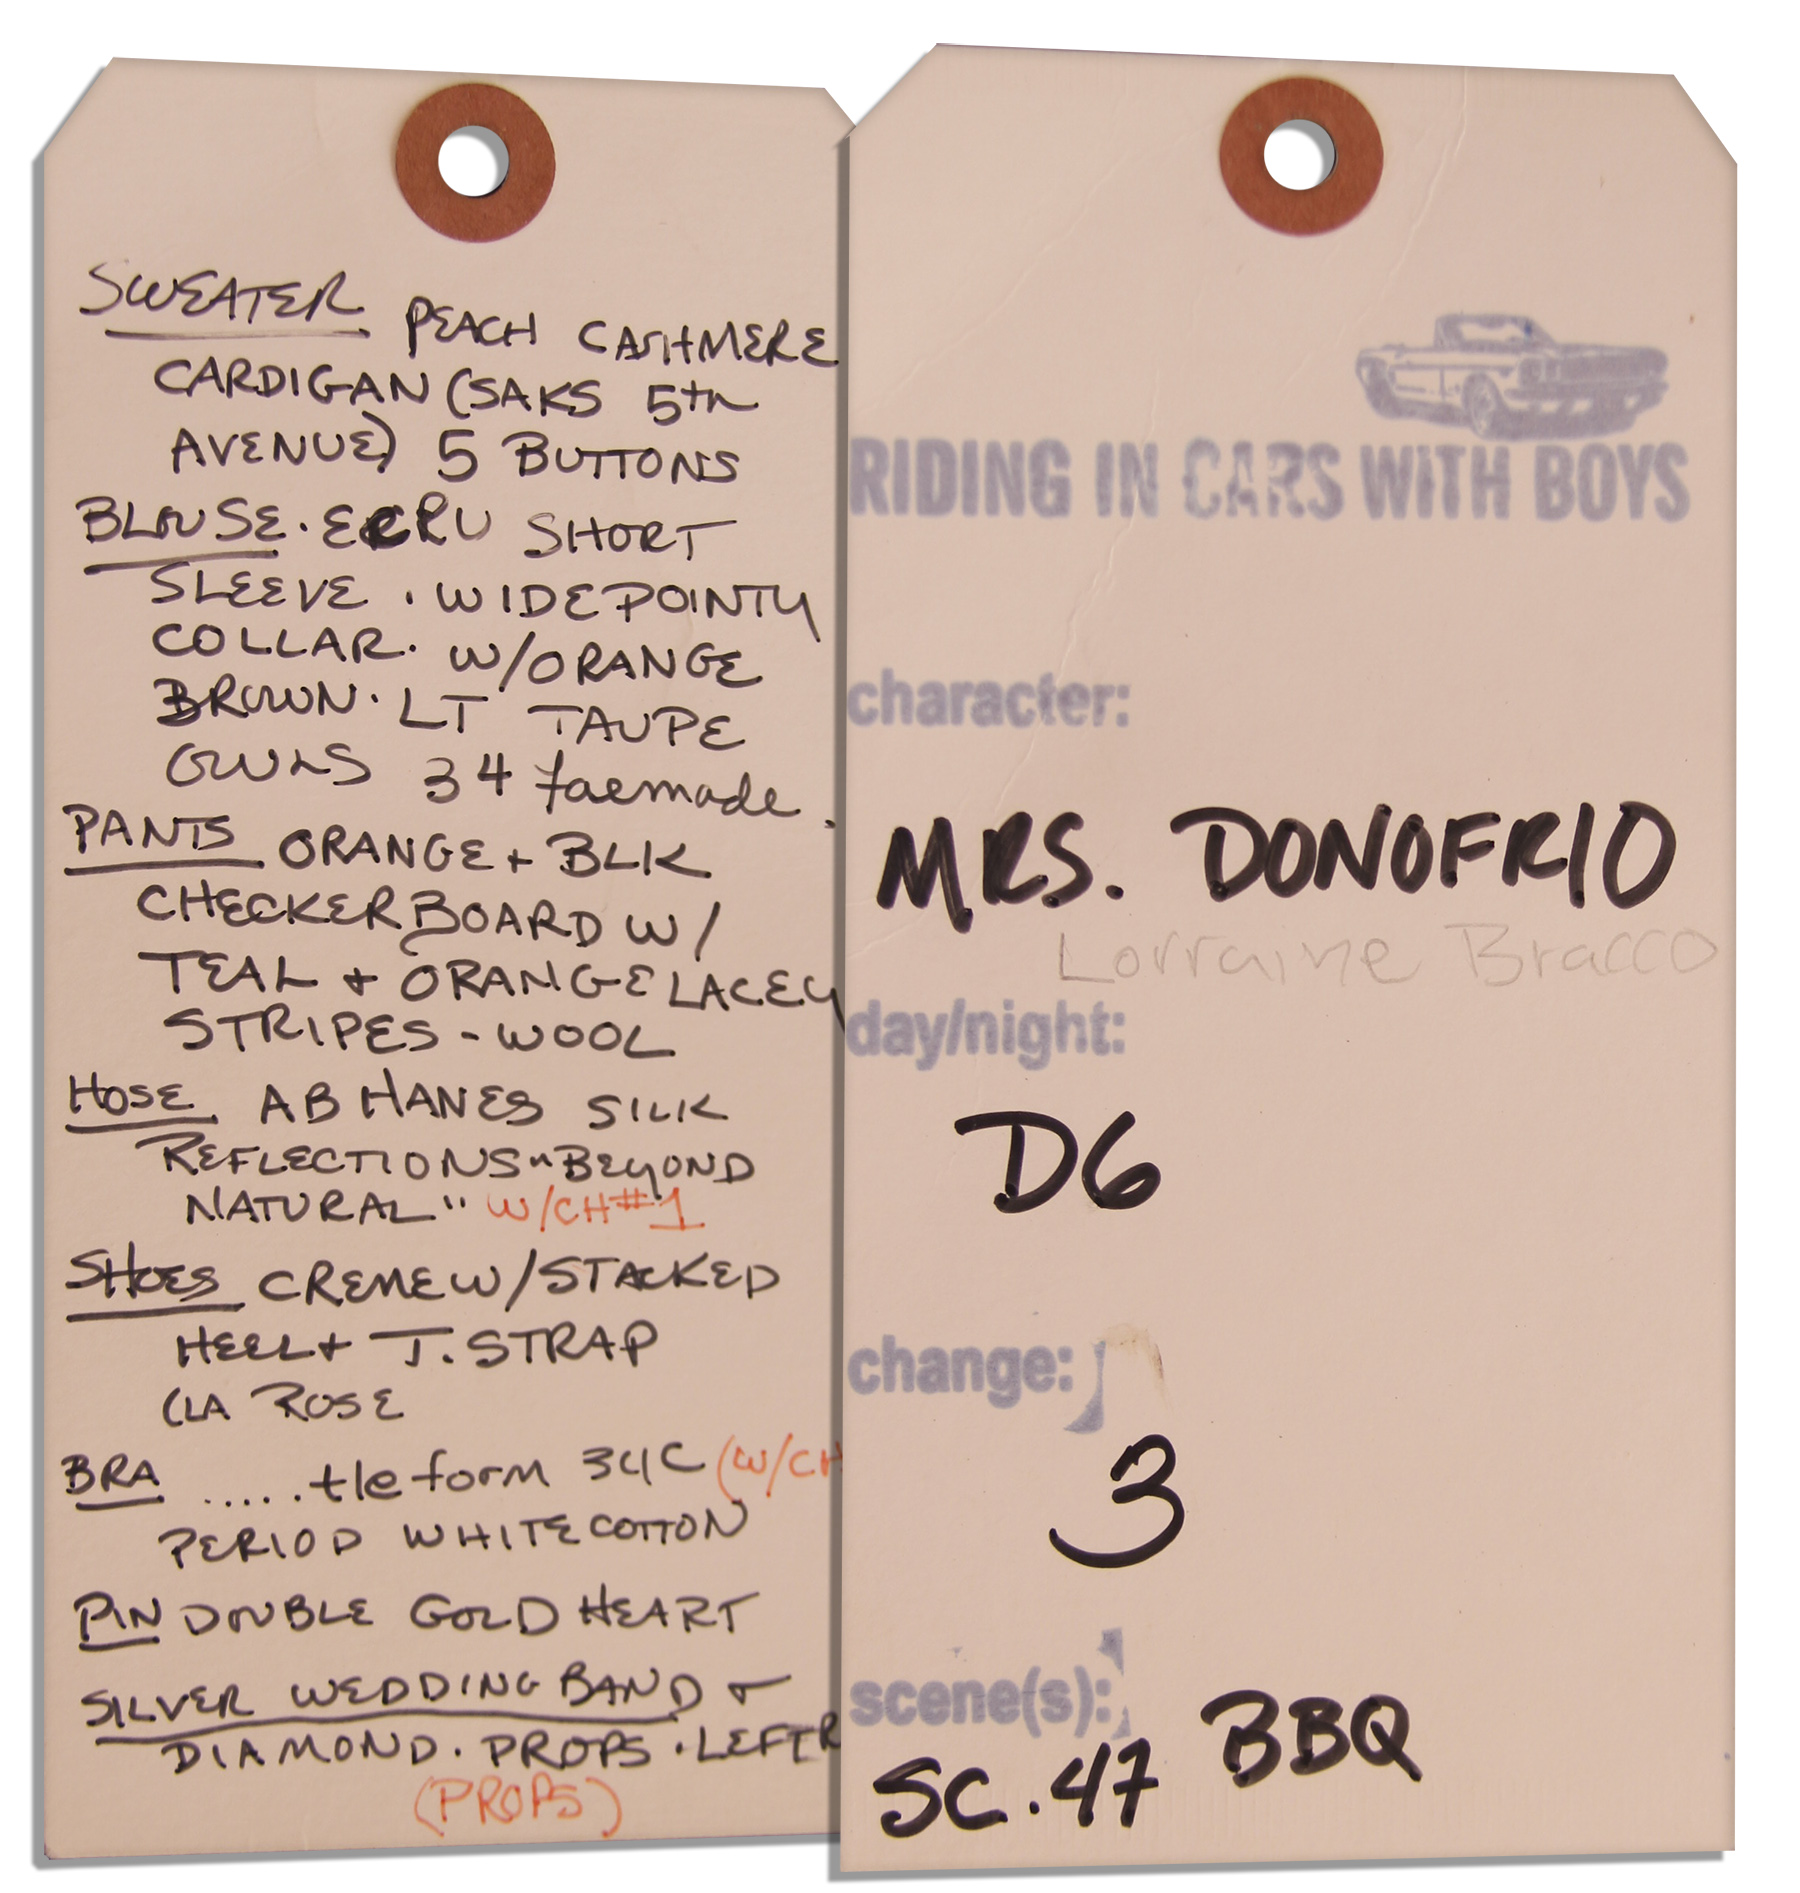 SWEATER PEACH CASHMERE
CARDIGAN (SAKS 5th
AVENUE) 5 BUTTONS
BLOUSE. ECRU SHORT
SLEEVE. WIDE POINTY
COLLAR. W/ORANGE
BROWN. LT TAUPE
OWLS 34
PANTS ORANGE + BLK
CHECKERBOARD W/
TEAL + ORANGE LACEY
STRIPES - WOOL
HOSE AB HANES SILK
REFLECTIONS "BEYOND
NATURAL" W/CH#1
SHOES CREME W/STACKED
HEEL + T. STRAP
(LA ROSE
BRA .....tleform 34C (W/CH
PERIOD WHITE COTTON
PIN DOUBLE GOLD HEART
SILVER WEDDING BAND +
DIAMOND. PROPS. LEFT R
(PROPS)
RIDING IN CARS WITH BOYS
character:
MRS. DONOFRIO
Lorraine Bracco
day/night:
D6
change:
3
scene(s):
SC. 47 BBQ